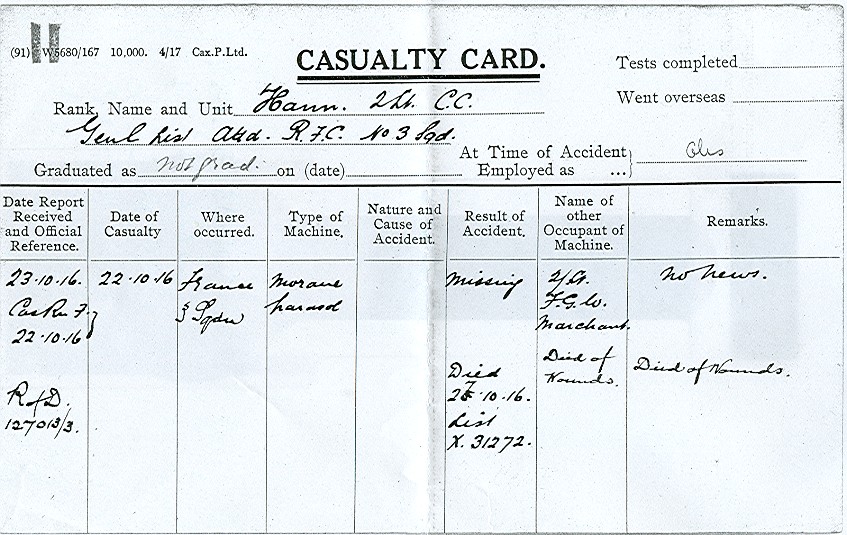 (91) W5680/167 10,000. 4/17 Cax.P.Ltd.
CASUALTY CARD.
Tests completed
Went overseas
Rank, Name and Unit Hann. 2Lt. C.C.
Genl List Attd. R.F.C. No 3 Sqd.
Graduated as not grad. on (date)
At Time of Accident
Employed as ...} Obs
Date Report
Received
and Official
Reference.
Date of
Casualty
Where
occurred.
Type of
Machine.
Nature and
Cause of
Accident.
Result of
Accident.
Name of
other
Occupant of
Machine.
Remarks.
23.10.16.
Cas Rn F.}
22.10.16
R of D.
127013/3.
22.10.16
France
3 Sqdn
Morane
parasol
Missing
Died
10.16.
List
X. 31272.
2/Lt.
F.G.W.
Marchant.
Died of
Wounds.
No News.
Died of Wounds.